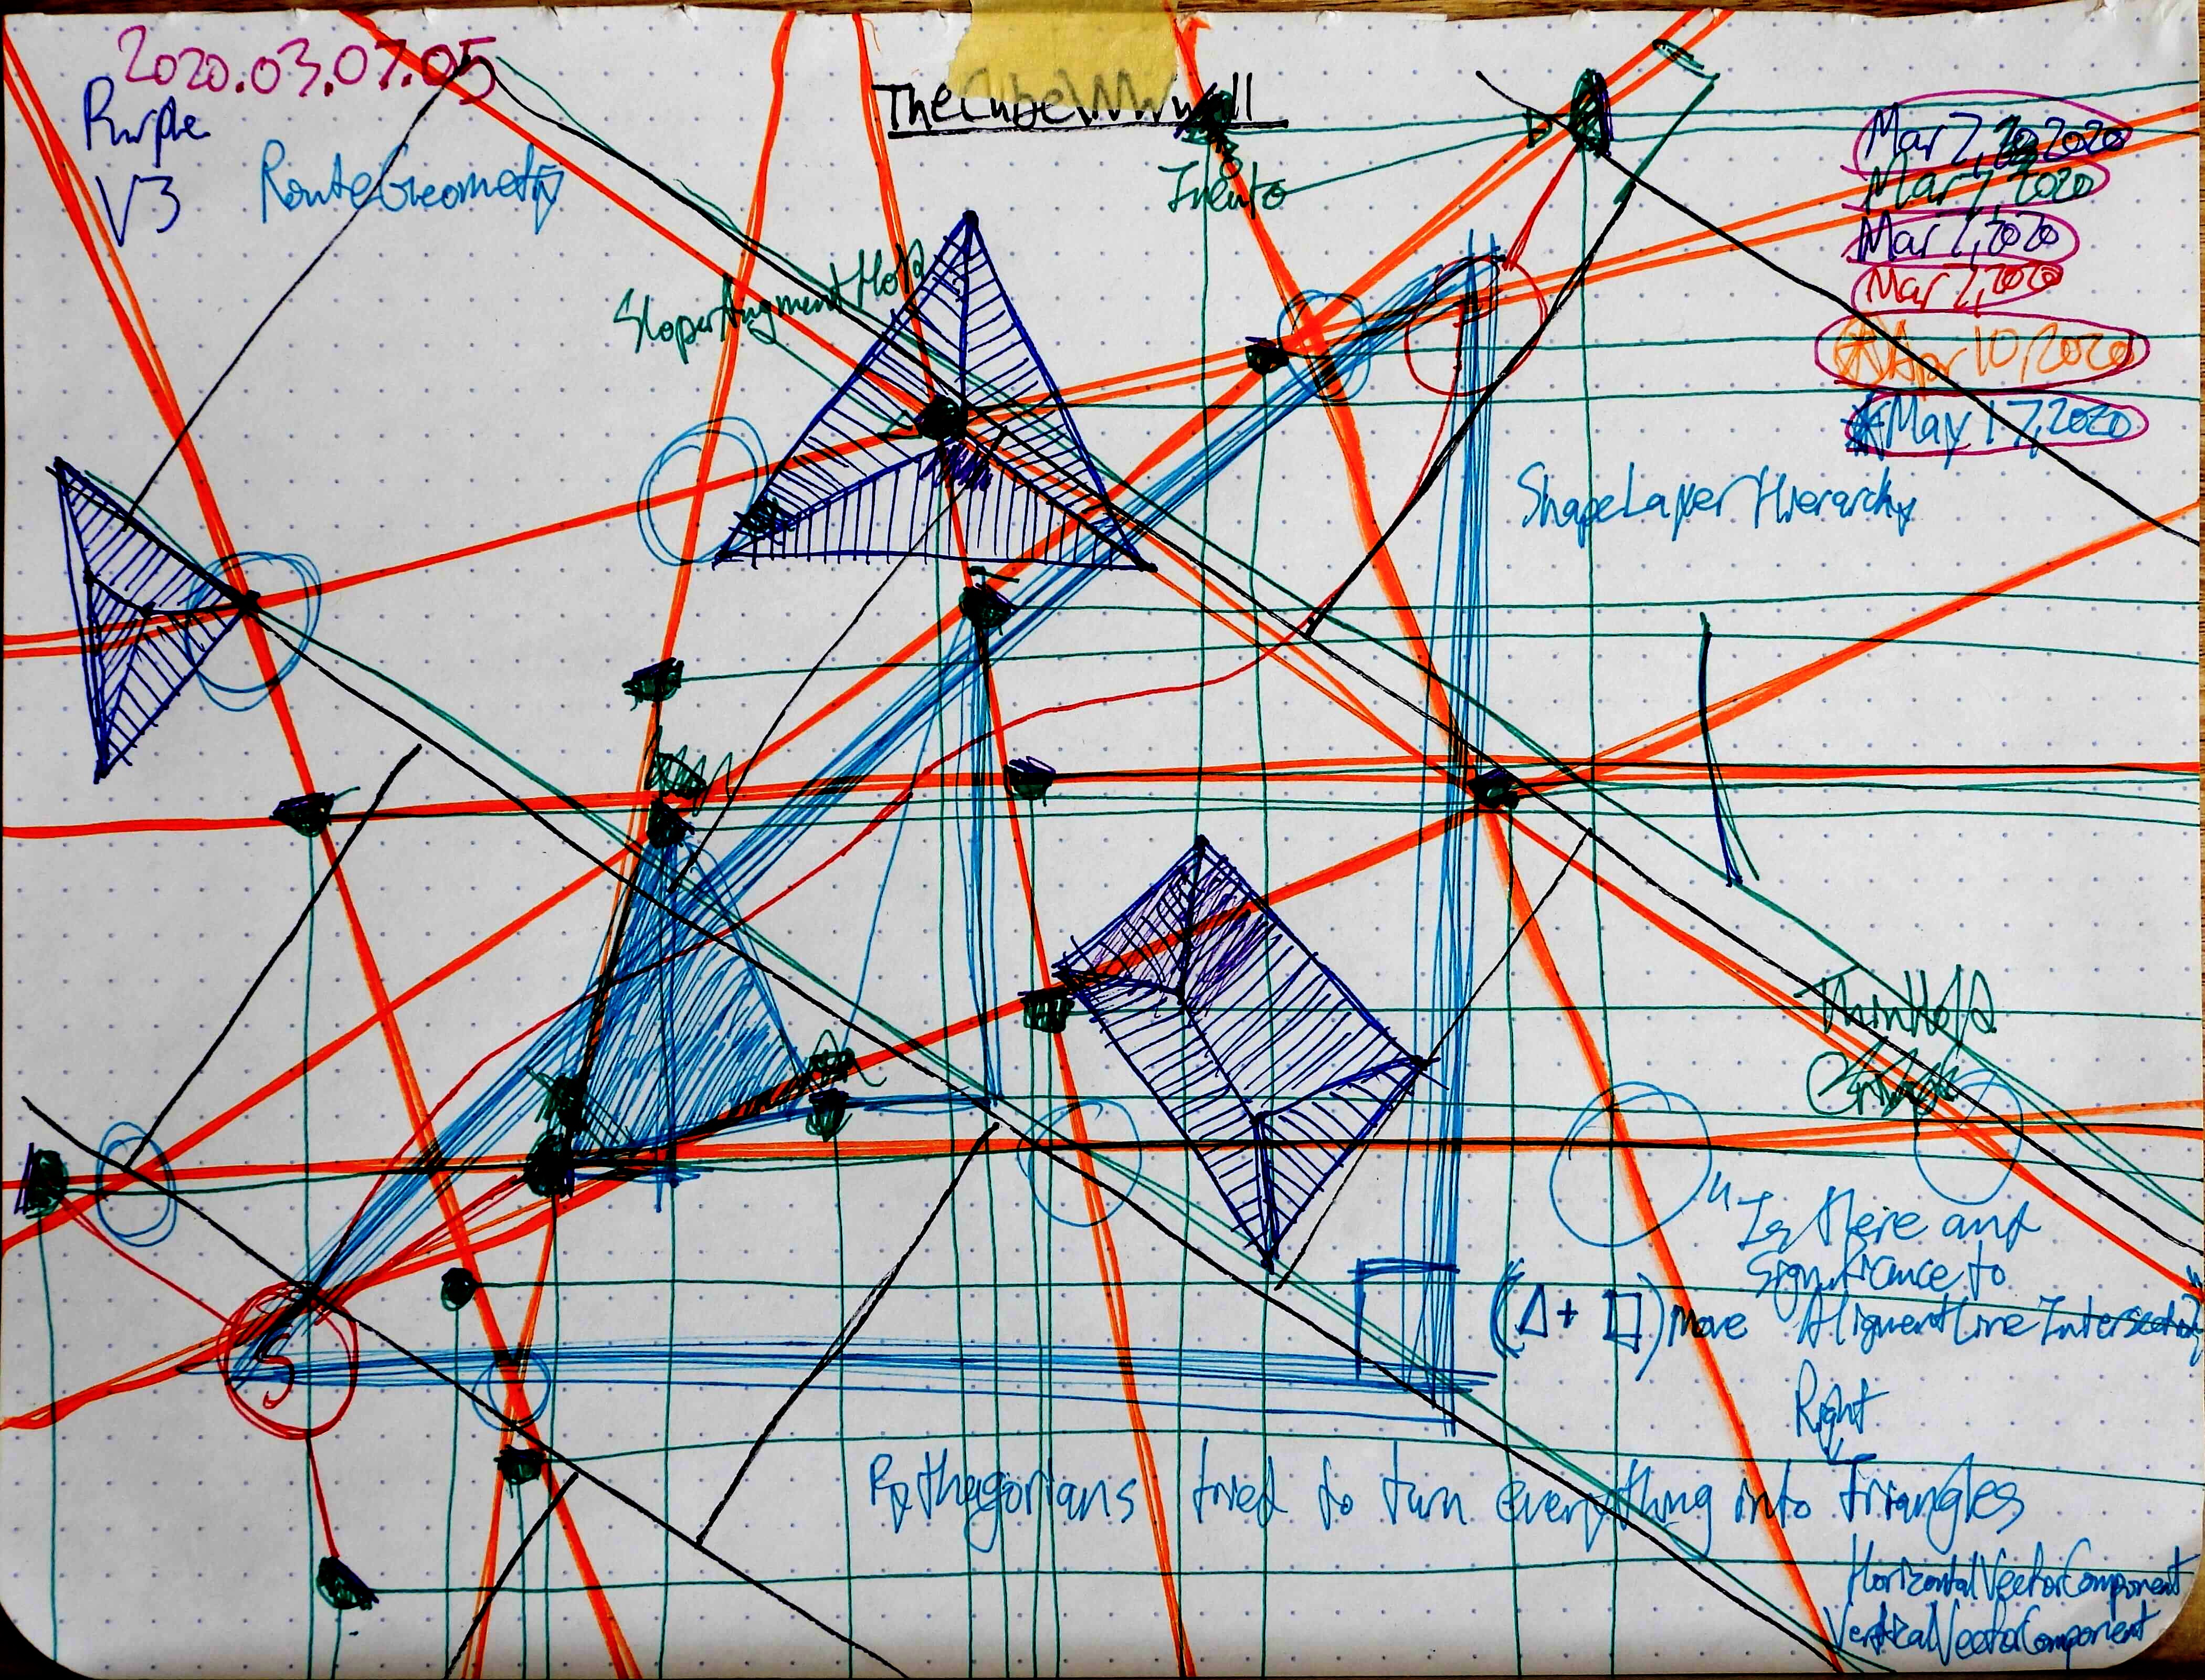 2020.03.07.05
Purple
V3
RouteGeometry
TheCubeNWWall
SloperAugmentHold
Mar 7, 2020
Mar 7, 2020
Mar 7, 2020
Mar 7, 2020
Apr 10, 2020
May 17, 2020
ShapeLayerHierarchy
ThinHold
"Is there any
significance to
AlignmentLineIntersection
(Δ+□)Move
Right
Pythagorians tried to turn everything into triangles
HorizontalVectorComponent
VerticalVectorComponent
S